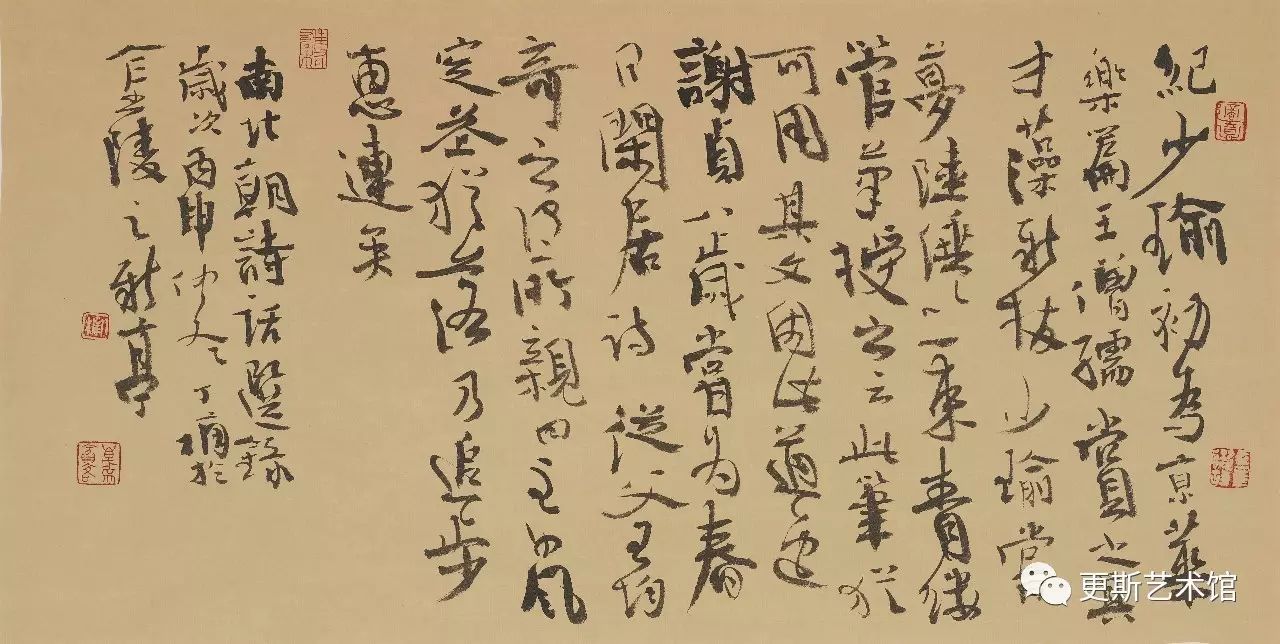 紀少瑜初為京華
樂篇王僧孺賞之
才藻新拔少瑜嘗
夢陸倕以一束青鏤
管筆授之云此筆猶
可用其文因此遒進
謝貞八歲嘗為春
日閑居詩從父王均
奇之謂所親曰至如風
定花猶落乃追步
惠連矣
南北朝詩話選錄
歲次丙申仲於
金陵之新亭
更斯艺术馆